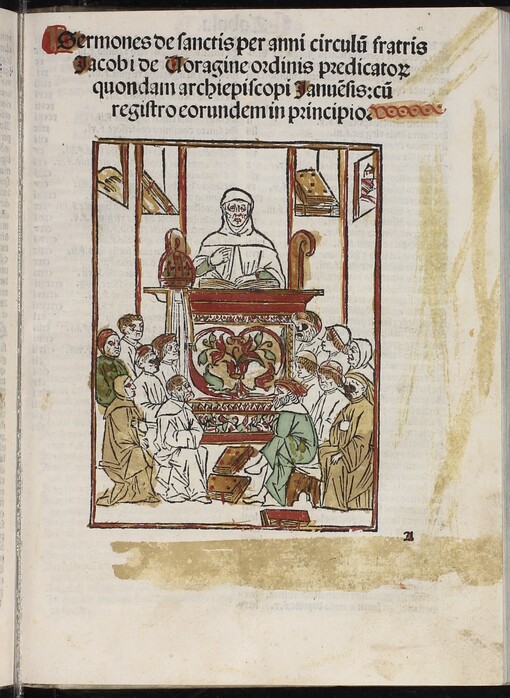 Sermones de sanctis per anni circulū fratris
Jacobi de Voragine ordinis predicatoꝝ
quondam archiepiscopi Januēsis: cū
registro eorundem in principio.
A